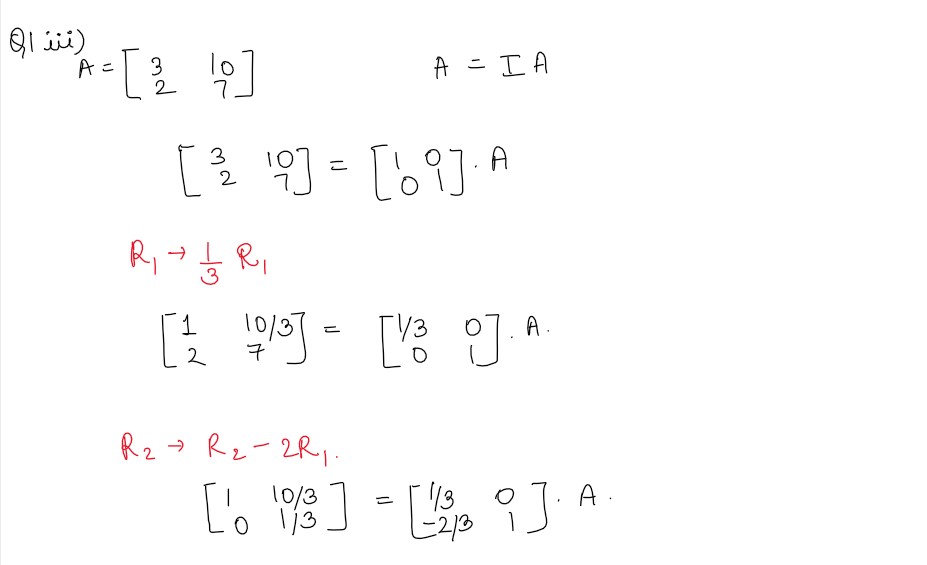 Q1 iii)
A = [ 3 10
2 7 ] A = I A
[ 3 10
2 7 ] = [ 1 0
0 1 ] . A
R₁ → 1/3 R₁
[ 1 10/3
2 7 ] = [ 1/3 0
0 1 ] . A.
R₂ → R₂ - 2R₁.
[ 1 10/3
0 1/3 ] = [ 1/3 0
-2/3 1 ] . A .